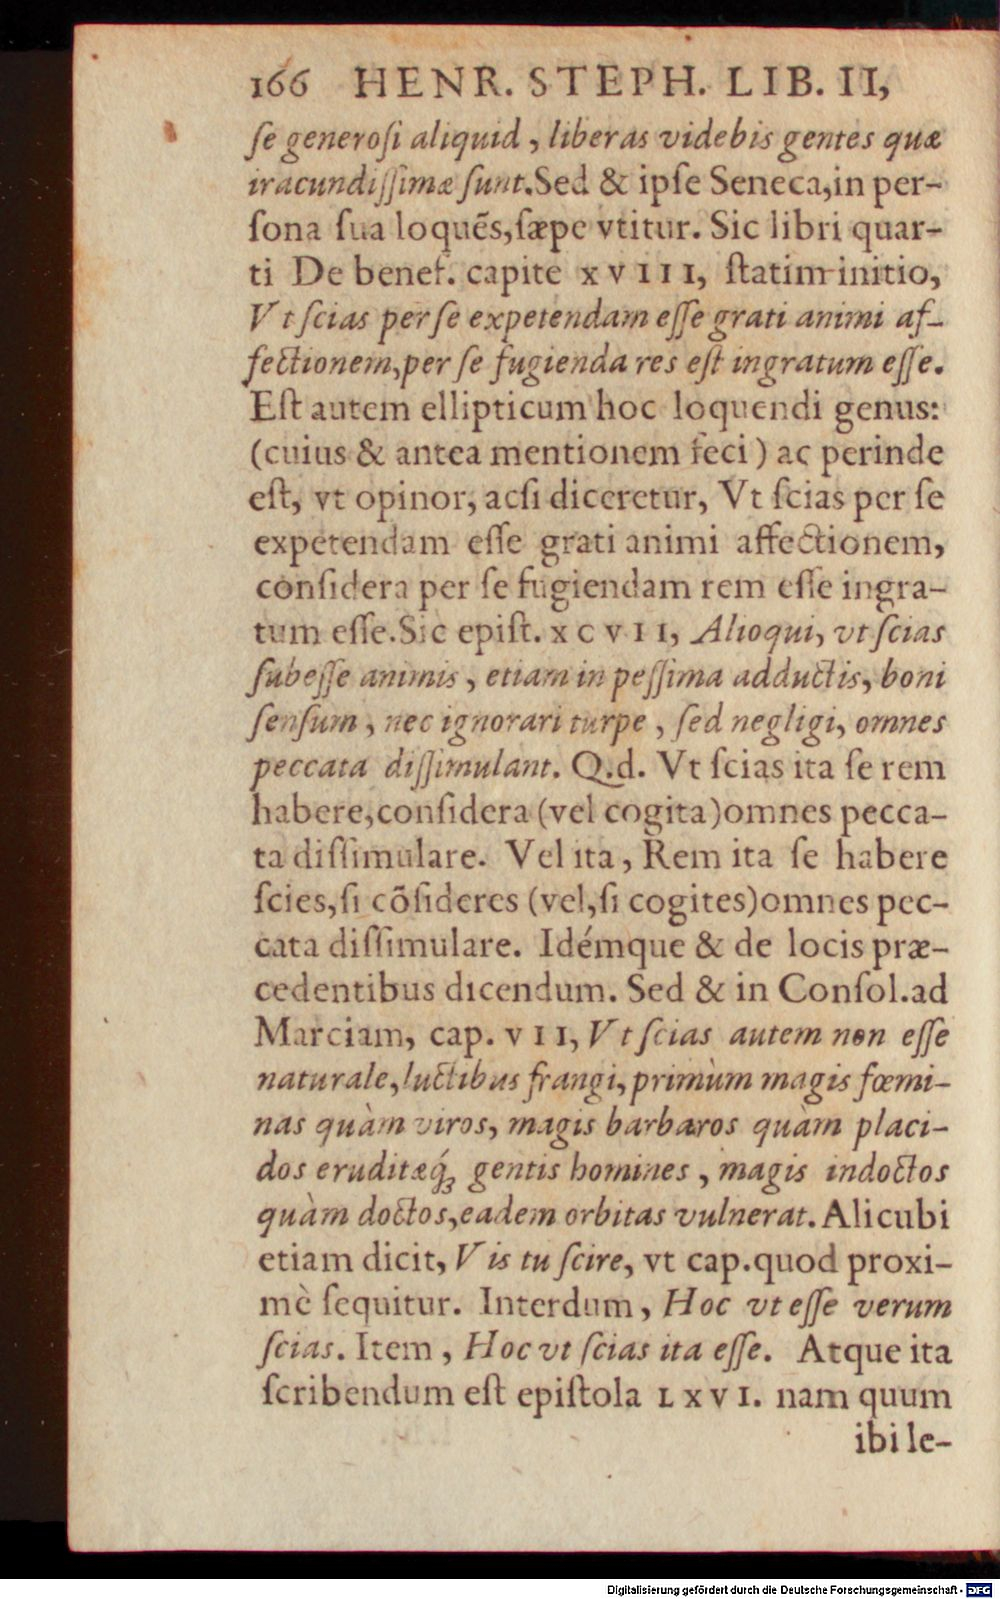 166 HENR. STEPH. LIB. II,
ſe generoſi aliquid, liberas videbis gentes quæ
iracundiſſimæ ſunt. Sed & ipſe Seneca, in per-
ſona ſua loquẽs, ſæpe vtitur. Sic libri quar-
ti De benef. capite XVIII, ſtatim initio,
Vt ſcias per ſe expetendam eſſe grati animi af-
fectionem, per ſe fugienda res eſt ingratum eſſe.
Eſt autem ellipticum hoc loquendi genus:
(cuius & antea mentionem feci) ac perinde
eſt, vt opinor, acſi diceretur, Vt ſcias per ſe
expetendam eſſe grati animi affectionem,
conſidera per ſe fugiendam rem eſſe ingra-
tum eſſe. Sic epiſt. XCVII, Alioqui, vt ſcias
ſubeſſe animis, etiam in peſſima adductis, boni
ſenſum, nec ignorari turpe, ſed negligi, omnes
peccata diſſimulant. Q.d. Vt ſcias ita ſe rem
habere, conſidera (vel cogita) omnes pecca-
ta diſſimulare. Vel ita, Rem ita ſe habere
ſcies, ſi cõſideres (vel, ſi cogites) omnes pec-
cata diſſimulare. Idémque & de locis præ-
cedentibus dicendum. Sed & in Conſol. ad
Marciam, cap. VII, Vt ſcias autem non eſſe
naturale, luctibus frangi, primùm magis fœmi-
nas quàm viros, magis barbaros quàm placi-
dos eruditæq́; gentis homines, magis indoctos
quàm doctos, eadem orbitas vulnerat. Alicubi
etiam dicit, Vis tu ſcire, vt cap. quod proxi-
mè ſequitur. Interdum, Hoc vt eſſe verum
ſcias. Item, Hoc vt ſcias ita eſſe. Atque ita
ſcribendum eſt epiſtola LXVI. nam quum
ibi le-
Digitalisierung gefördert durch die Deutsche Forschungsgemeinschaft - DFG